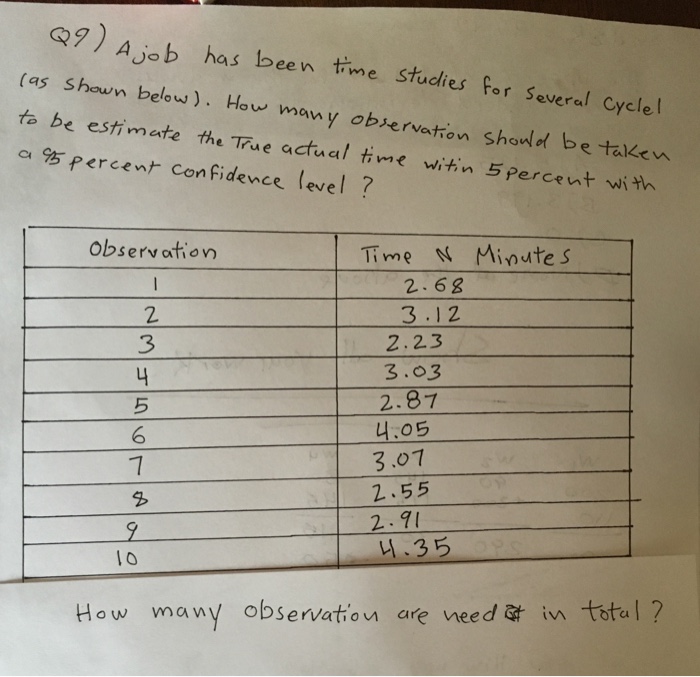 Q9) A job has been time studies for several cyclel
(as shown below). How many observation should be taken
to be estimate the True actual time witin 5 percent with
a 95 percent confidence level ?
Observation Time N Minutes
1 2.68
2 3.12
3 2.23
4 3.03
5 2.87
6 4.05
7 3.07
8 2.55
9 2.91
10 4.35
How many observation are need in total ?